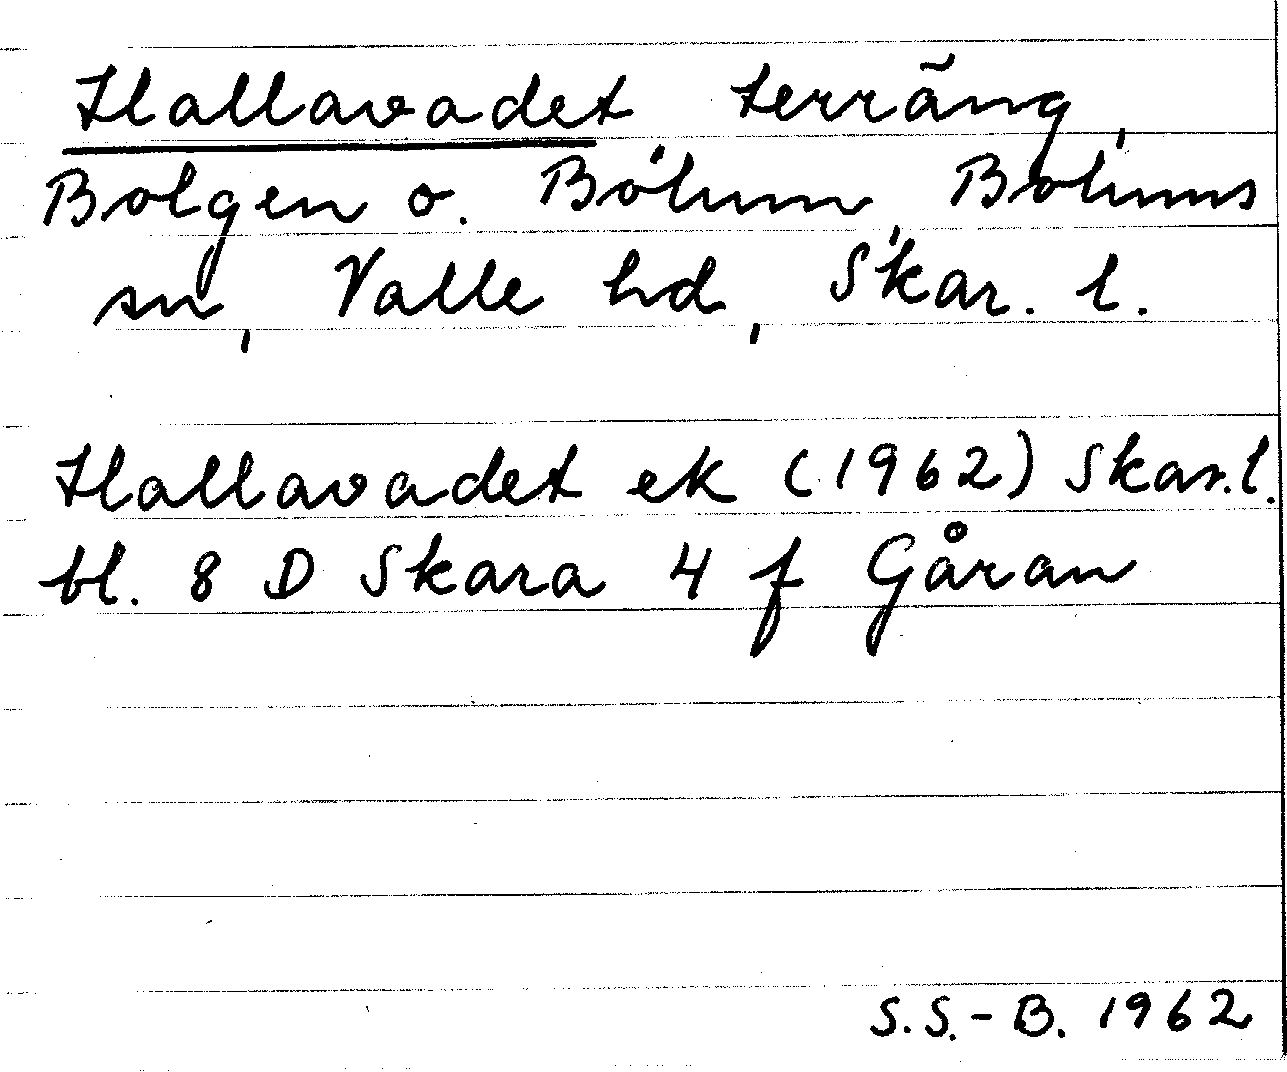 Hallavadet terräng,
Bolgen o. Bölum, Bolums
sn, Valle hd, Skar. l.
Hallavadet ek (1962) Skar. l.
bl. 8 D Skara 4 f Gåran
S.S.-B. 1962